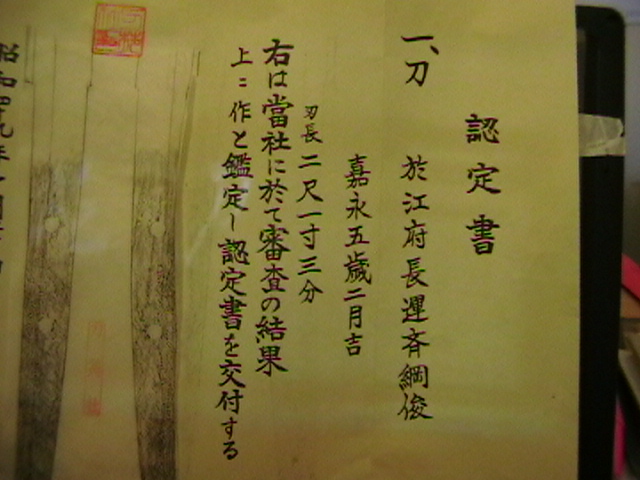 認定書
一、刀 於江府長運斉綱俊
嘉永五歳二月吉
刃長二尺一寸三分
右は當社に於て審査の結果
上ニ作と鑑定し認定書を交付する
昭和四十九年